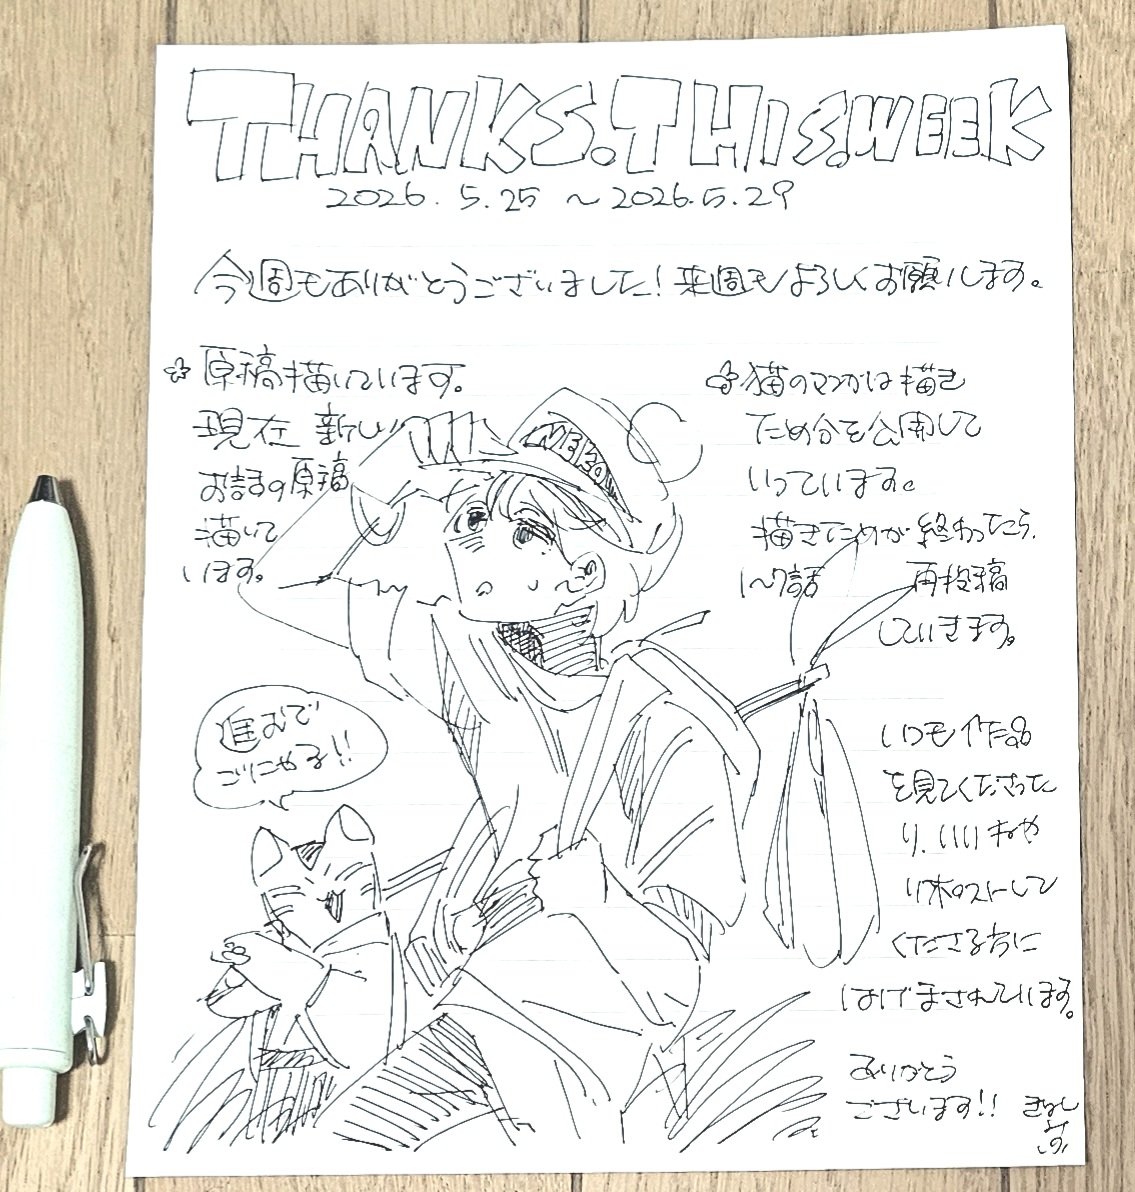 THANKS.THIS.WEEK
2026.5.25 〜2026.5.29
今週もありがとうございました!来週もよろしくお願いします。
☆原稿描いています。
現在 新しい
お話の原稿
描いて
います。
☆猫のマンガは描き
ため分を公開して
いっています。
描きためが終わったら、
1〜7話 再投稿
していきます。
進むで
ごにゃる!!
いつも作品
を見てくださった
り、いいねや
リポストして
くださる方に
はげまされています。
ありがとう
ございます!!